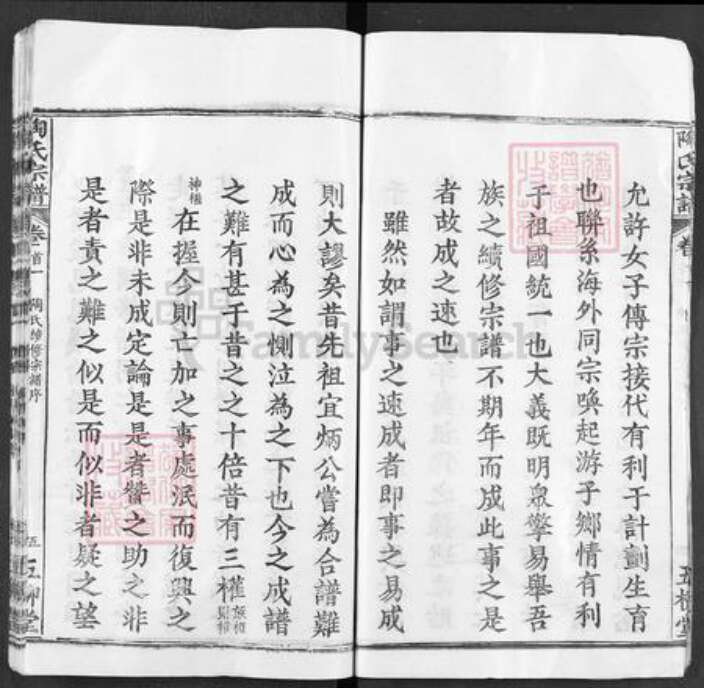 允許女子傳宗接代有利于計劃生育
也聯系海外同宗喚起游子鄉情有利
于祖國統一也大義既明眾擎易舉吾
族之續修宗譜不期年而成此事之是
者故成之速也
雖然如謂事之速成者即事之易成
則大謬矣昔先祖宜炳公嘗為合譜難
成而心為之惻泣為之下也今之成譜
之難有甚于昔之之十倍昔有三權族權
神權在握今則亡加之事處泯而復興之
際是非未成定論是是者贊之助之非
是者責之難之似是而似非者疑之望
陶氏宗譜
卷首一
陶氏續修宗譜序
五
五柳堂
陶氏宗譜
五柳堂
FamilySearch